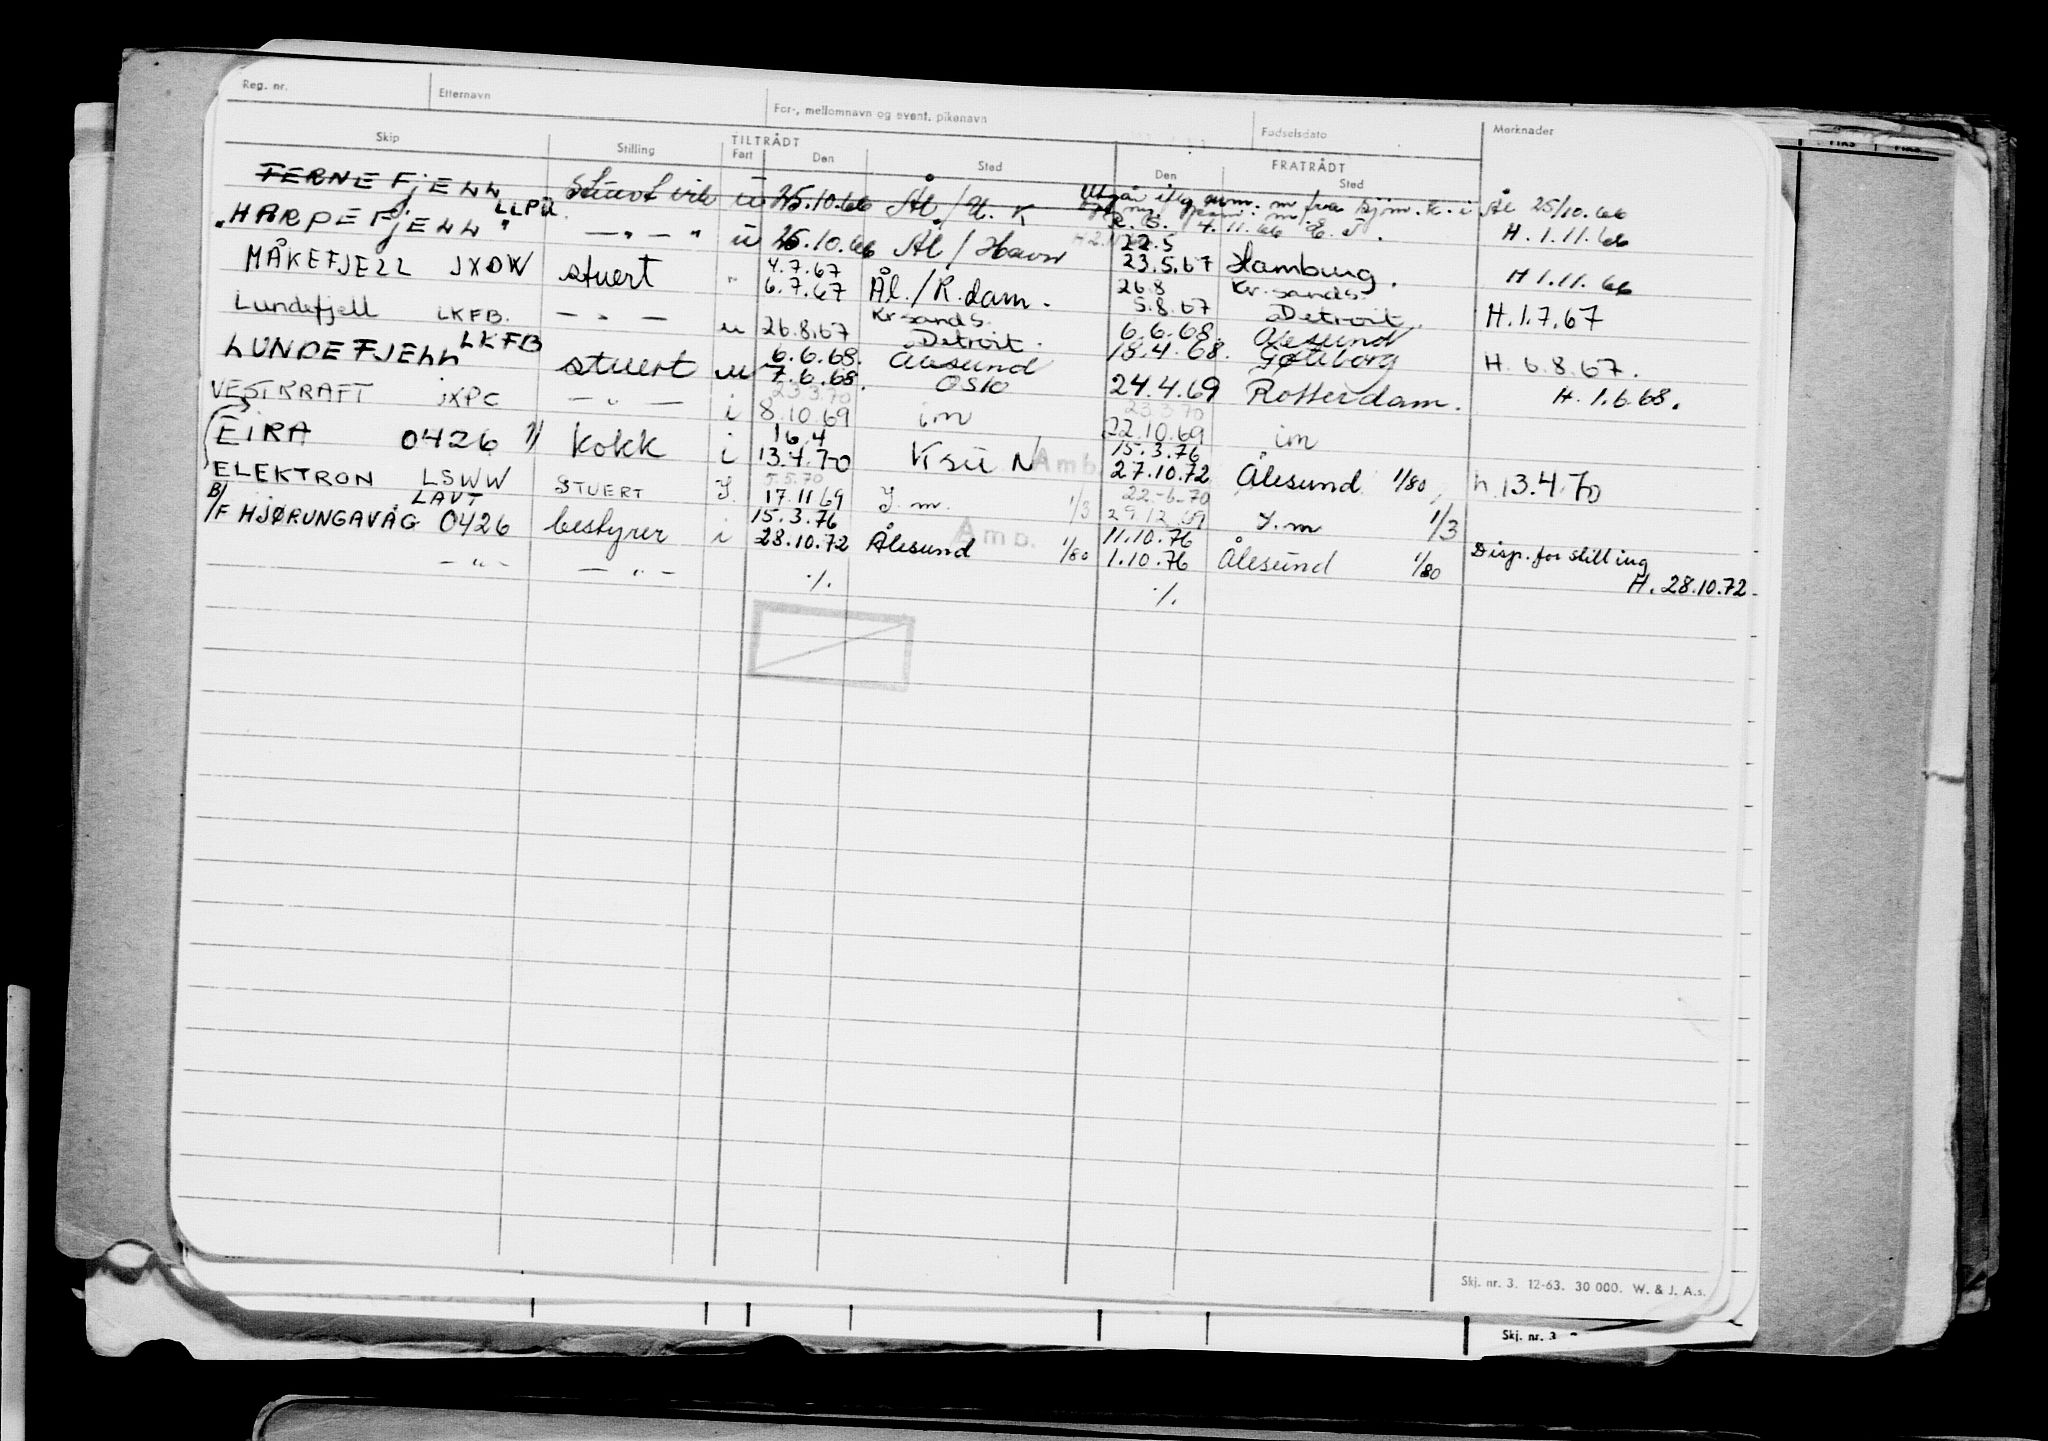 Reg. nr. Etternavn For-, mellomnavn og event. pikenavn Fødselsdato Merknader
TILTRÅDT FRATRÅDT
Skip Stilling Fart Den Sted Den Sted
FERNEFJELL Stuert vik u 25.10.66 Ål/U.K Utgår iflg. m fra Sjøm.k. i Ål 25/10.66
4.11.66
"HARPEFJELL" LLPQ — " — " u 25.10.66 Ål/Havn 22.5 H.1.11.66
23.5.67 Hamburg.
MÅKEFJELL JXDW stuert " 4.7.67 26.8 Kr.sands. H 1.11.66
6.7.67 Ål./R.dam. 5.8.67 Detroit.
Lundefjell LKFB. — " — u 26.8.67 Kr.sands. Detroit. 6.6.68. Ålesund H.1.7.67
18.4.68. Gøteborg
LUNDEFJELL LKFB stuert u 6.6.68. Ålesund H.6.8.67.
7.6.68. Oslo 24.4.69 Rotterdam. H.1.6.68.
VESTKRAFT JXPC — " — i 23.3.70 23.3.70
8.10.69 im 22.10.69 im
EIRA 0426 kokk i 16.4 15.3.76
13.4.70 Ksu N Amb. 27.10.72 Ålesund 1/80 h.13.4.70
ELEKTRON LSWW STUERT J. 5.5.70 22-6-70
LAVT 17.11.69 J.m. 1/3 29.12.69 J.m 1/3
B/F HJØRUNGAVÅG 0426 bestyrer i 15.3.76 Amb. 11.10.76
28.10.72 Ålesund 1/80 1.10.76 Ålesund 1/80 Disp. for stilling
— " — — " — ./. ./. H.28.10.72.
Skj. nr. 3. 12-63. 30 000. W. & J. A.s.
Skj. nr. 3